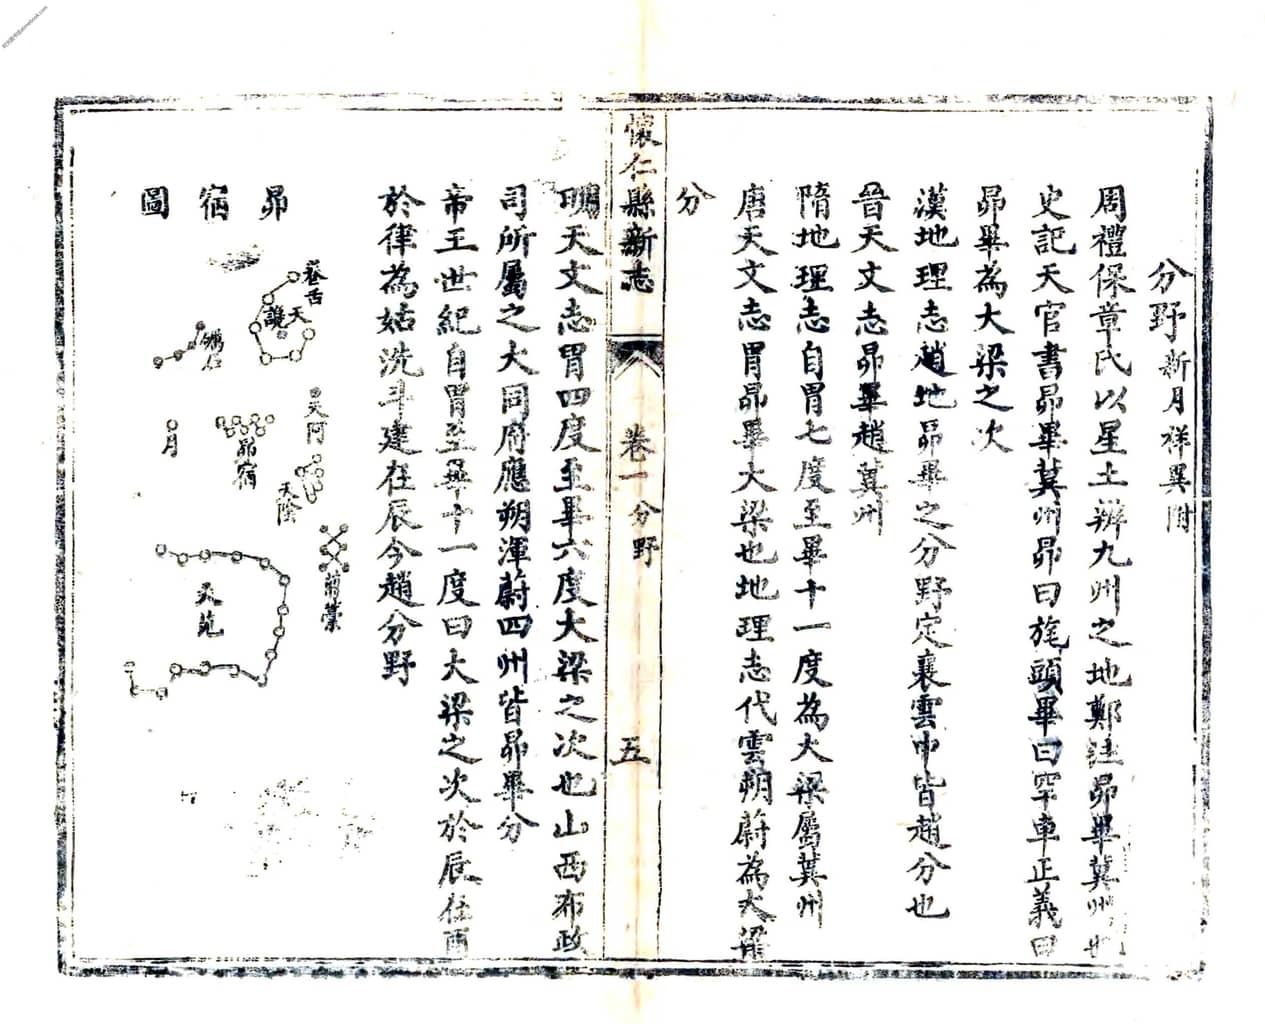 分野新月祥異附
周禮保章氏以星土辨九州之地鄭註昴畢冀州也
史記天官書昴畢冀州昴曰旄頭畢曰罕車正義曰
昴畢為大梁之次
漢地理志趙地昴畢之分野定襄雲中皆趙分也
晉天文志昴畢趙冀州
隋地理志自胃七度至畢十一度為大梁屬冀州
唐天文志胃昴畢大梁也地理志代雲朔蔚為大梁
分
懷仁縣新志
卷一分野
五
明天文志胃四度至畢六度大梁之次也山西布政
司所屬之大同府應朔渾蔚四州皆昴畢分
帝王世紀自胃至畢十一度曰大梁之次於辰在酉
於律為姑洗斗建在辰今趙分野
昴宿圖
卷舌
天讒
礪石
天阿
月
昴宿
天陰
芻藁
天苑